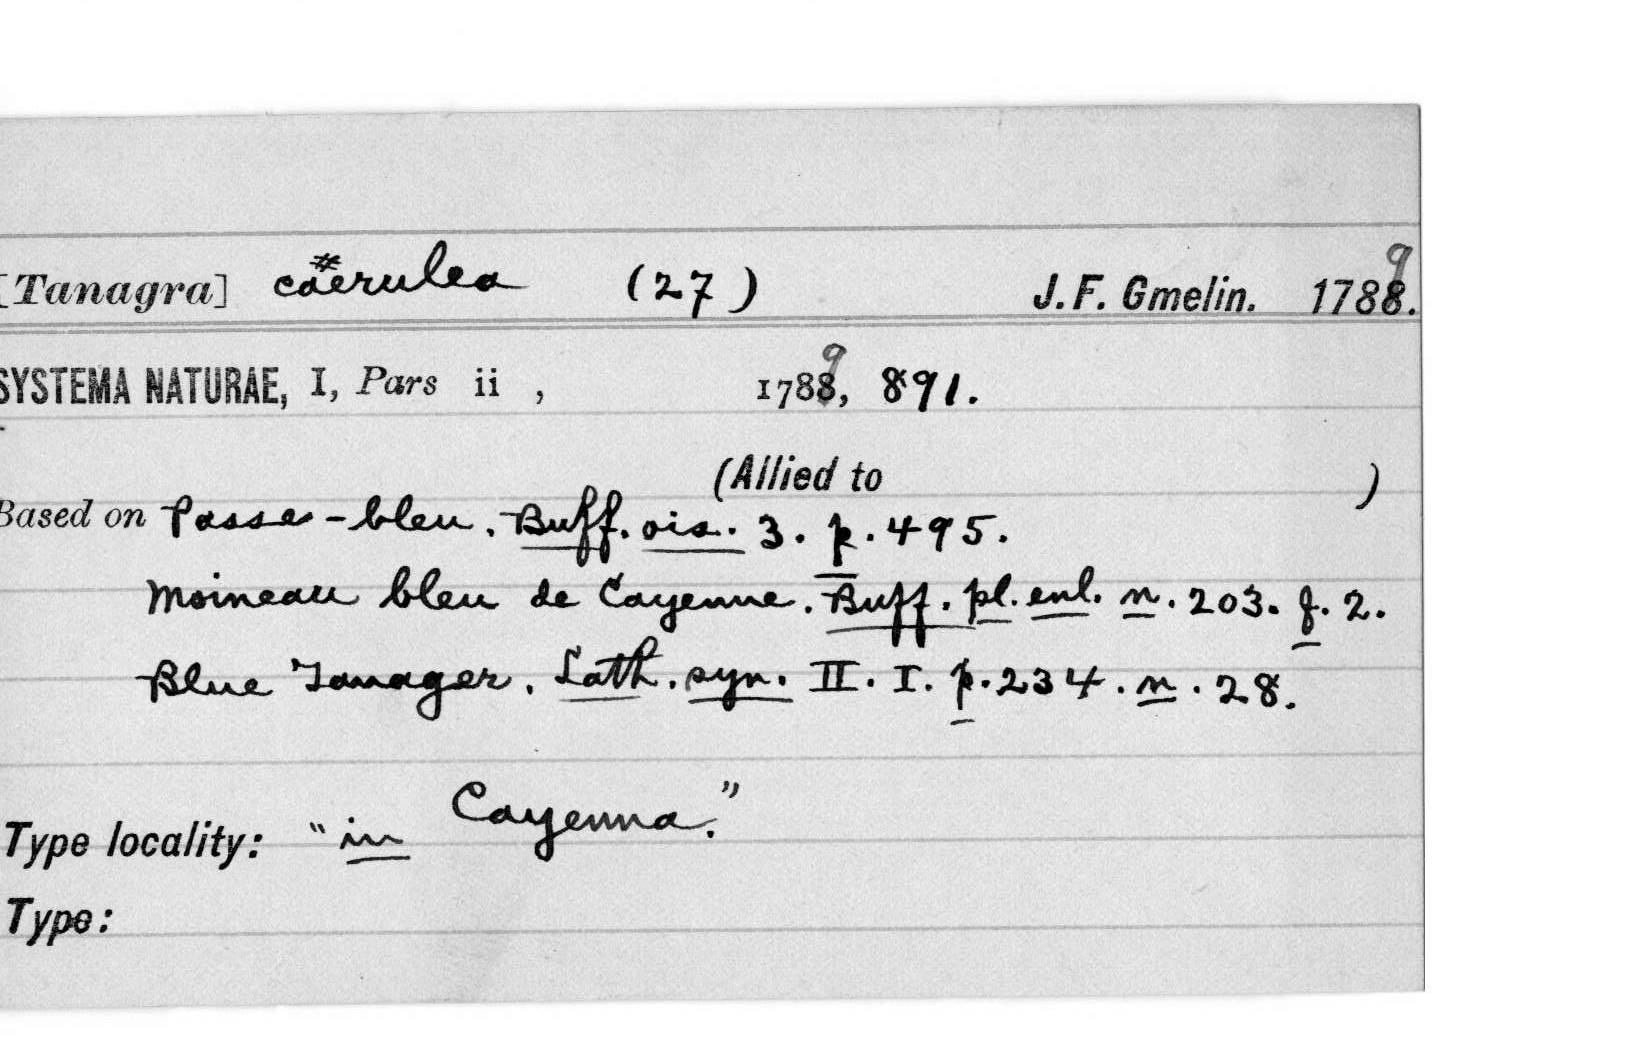 [Tanagra] caerulea (27) J. F. Gmelin. 1788. 9
SYSTEMA NATURAE, I, Pars ii , 1788, 9 891.
(Allied to )
Based on Passe-bleu. Buff. ois. 3. p. 495.
Moineau bleu de Cayenne. Buff. pl. enl. n. 203. f. 2.
Blue Tanager. Lath. syn. II. I. p. 234. n. 28.
Type locality: "in Cayenna."
Type: